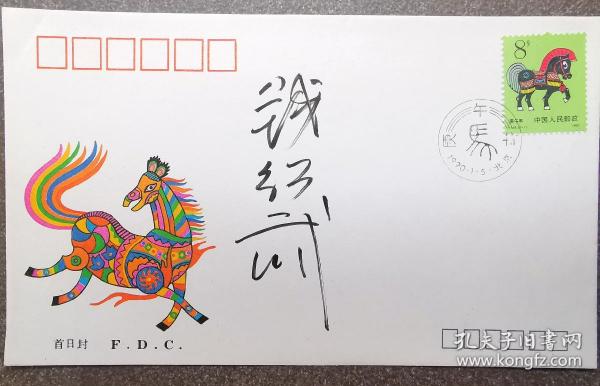 8分
庚午年
中国人民邮政
庚午
馬
1990·1·5·北京
钱绍武
首日封 F.D.C.
孔夫子旧书网
www.kongfz.com